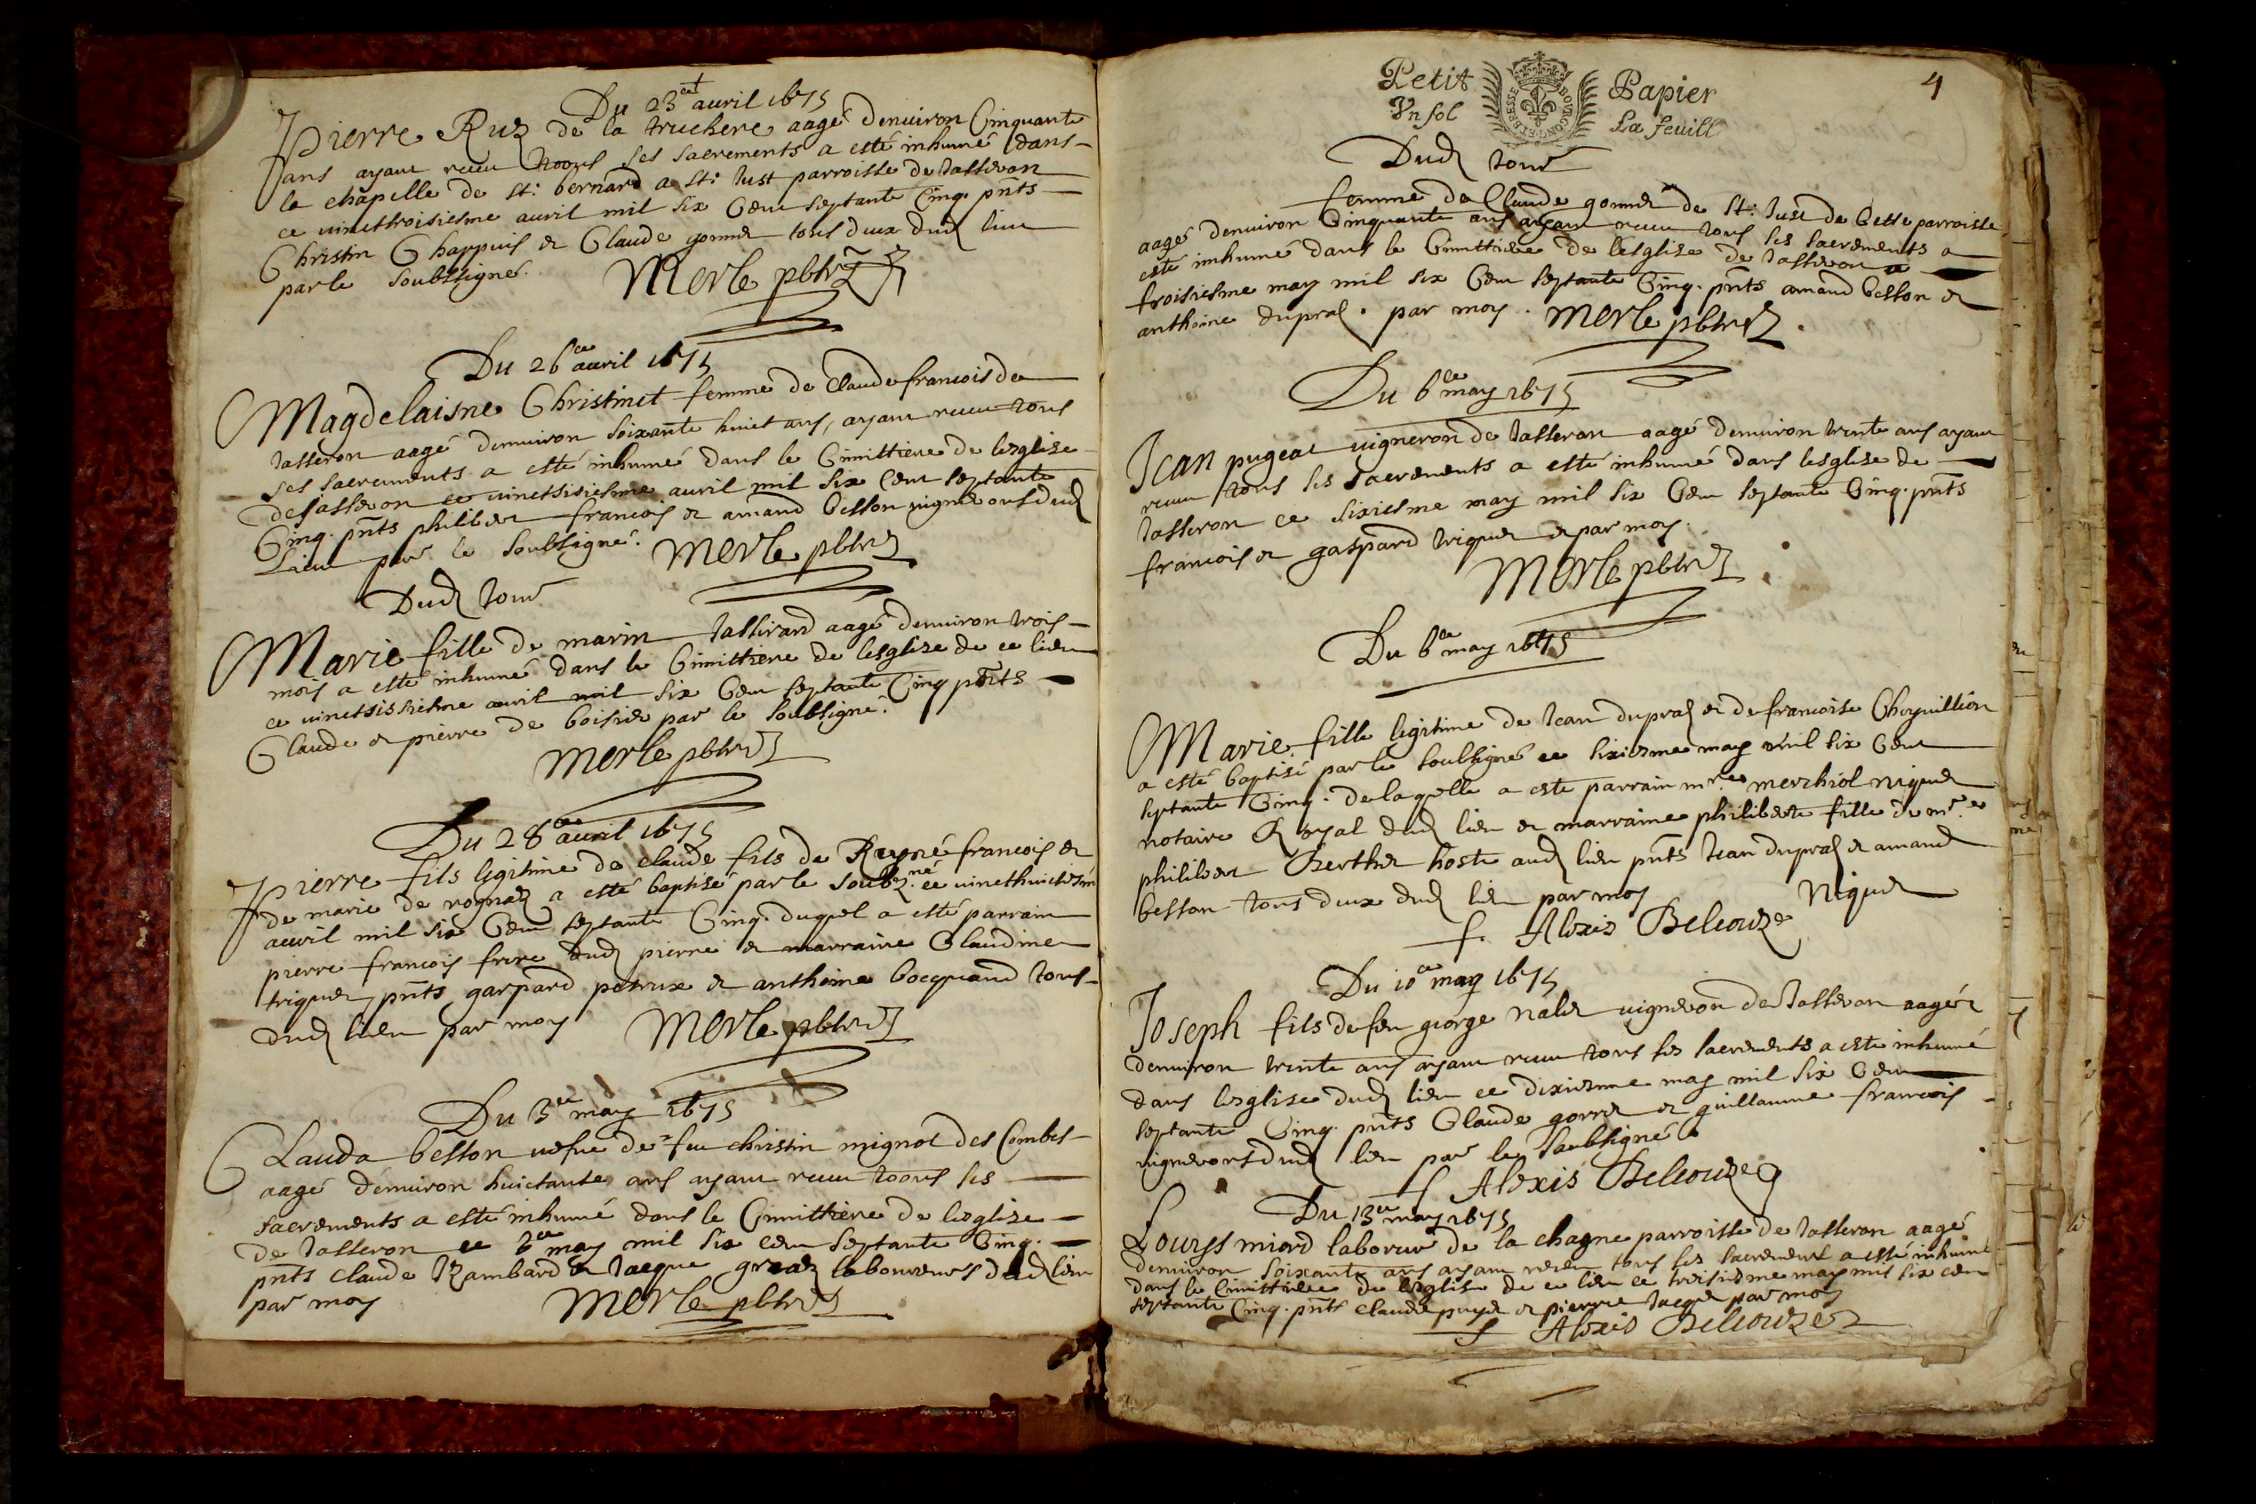 Du 23et auril 1675
Pierre Ruz de la truchere aagé denuiron Cinquante
ans ayant receu toous ses sacrements a esté inhumé dans
la chapelle de st: bernard a st: Just parroisse de Jasseron
ce vinttroisiesme auril mil six Cent septante Cinq. pnts
Christin Chappuis et Claude gonnet tous deux dud lieu
par le soubsigné. Merle pbtre
Du 26e auril 1675
Magdelaisne Christinet femme de Claude francois de
Jasseron aagé denuiron soixante huict ans, ayant receu tous
ses sacrements a esté inhumé dans le Cimittiere de lesglise
de Jasseron ce vinctsisiesme auril mil six Cent septante
Cinq. pnts philibert francois et amand besson vignerons dud
Lieu par le soubsigné. Merle pbtre
Dud Jour
Marie fille de marin Jasserand aagé denuiron trois
mois a esté inhumé dans le Cimittiere de lesglize de ce lieu
ce vinctsissiesme auril mil six Cent septante Cinq pnts
Claude et pierre de boisier par le soubsigné.
Merle pbtre
Du 28e auril 1675
Pierre fils legitime de claude fils de Reyné francois et
de marie de rognad a esté baptisé par le soubz.né ce vincthuictiesm
auuril mil six Cent septante Cinq. duquel a esté parrain
pierre francois frere dud pierre et marraine Claudine
triquet pnts gaspard petrux et anthoine bocquand tous
dud lieu par moy Merle pbtre
Du 3e may 1675
Clauda besson uefue de feu christin mignot des Combes
aagé denuiron huictante ans ayant receu toous ses
sacrements a esté inhumé dans le Cimittiere de lesglize
de Jasseron ce 3e may mil six cent septante Cinq.
pnts claude Rambard et Jacque laboureurs dud lieu
par moy Merle pbtre
4
Petit Papier
Vn sol La feuill
BRESSE BOVRGONGE
Dud Jour
femme de Claude gonnet de st: Just de Cette parroisse
aagé denuiron Cinquante ans ayant receu tous ses sacrements a
esté inhumé dans le Cimittiere de lesglize de Jasseron ce
troisiesme may mil six Cent septante Cinq. pnts amand besson et
anthoine duprad. par moy. Merle pbtre.
Du 6e may 1675
Jean pugeat vigneron de Jasseron aagé denuiron trente ans ayant
receu tous ses Sacrements a esté inhumé dans lesglise de
Jasseron ce sixiesme may mil six Cent septante Cinq. pnts
francois et gaspard triquet et par moy.
Merle pbtre
Du 6e may 1675
Marie fille legitime de Jean duprad et de francoise Choyuillion
a esté baptisé par le soubsigné ce sixiesme may mil six Cent
septante Cinq. de laquelle a esté parrain mre merchiol niquet
notaire Royal dud lieu et marraine philiberte fille de mre
philibert Berthet hoste aud lieu pnts Jean duprad et amand
besson tous deux dud lieu par moy Niquet
f. Alexis Belcouze
Du 10e may 1675
Joseph fils de feu george nalet vigneron de Jasseron aagé
denuiron trente ans ayant receu tous ses sacrements a esté inhumé
dans lesglise dud lieu ce dixiesme may mil six Cent
septante Cinq. pnts Claude gorret et guillaume francois
vignerons dud lieu par le soubsigné
f Alexis Belcouze
Du 13e may 1675
Louyss miard laboreur de la chagne parroisse de Jasseron aagé
denuiron soixante ans ayant receu tous ses sacrement a esté inhumé
dans le Cimittiere de lesglise de ce lieu ce treisiesme may mil six cen
septante Cinq. pnts Claude puget et pierre Jacquet par moy
f Alexis Belcouze